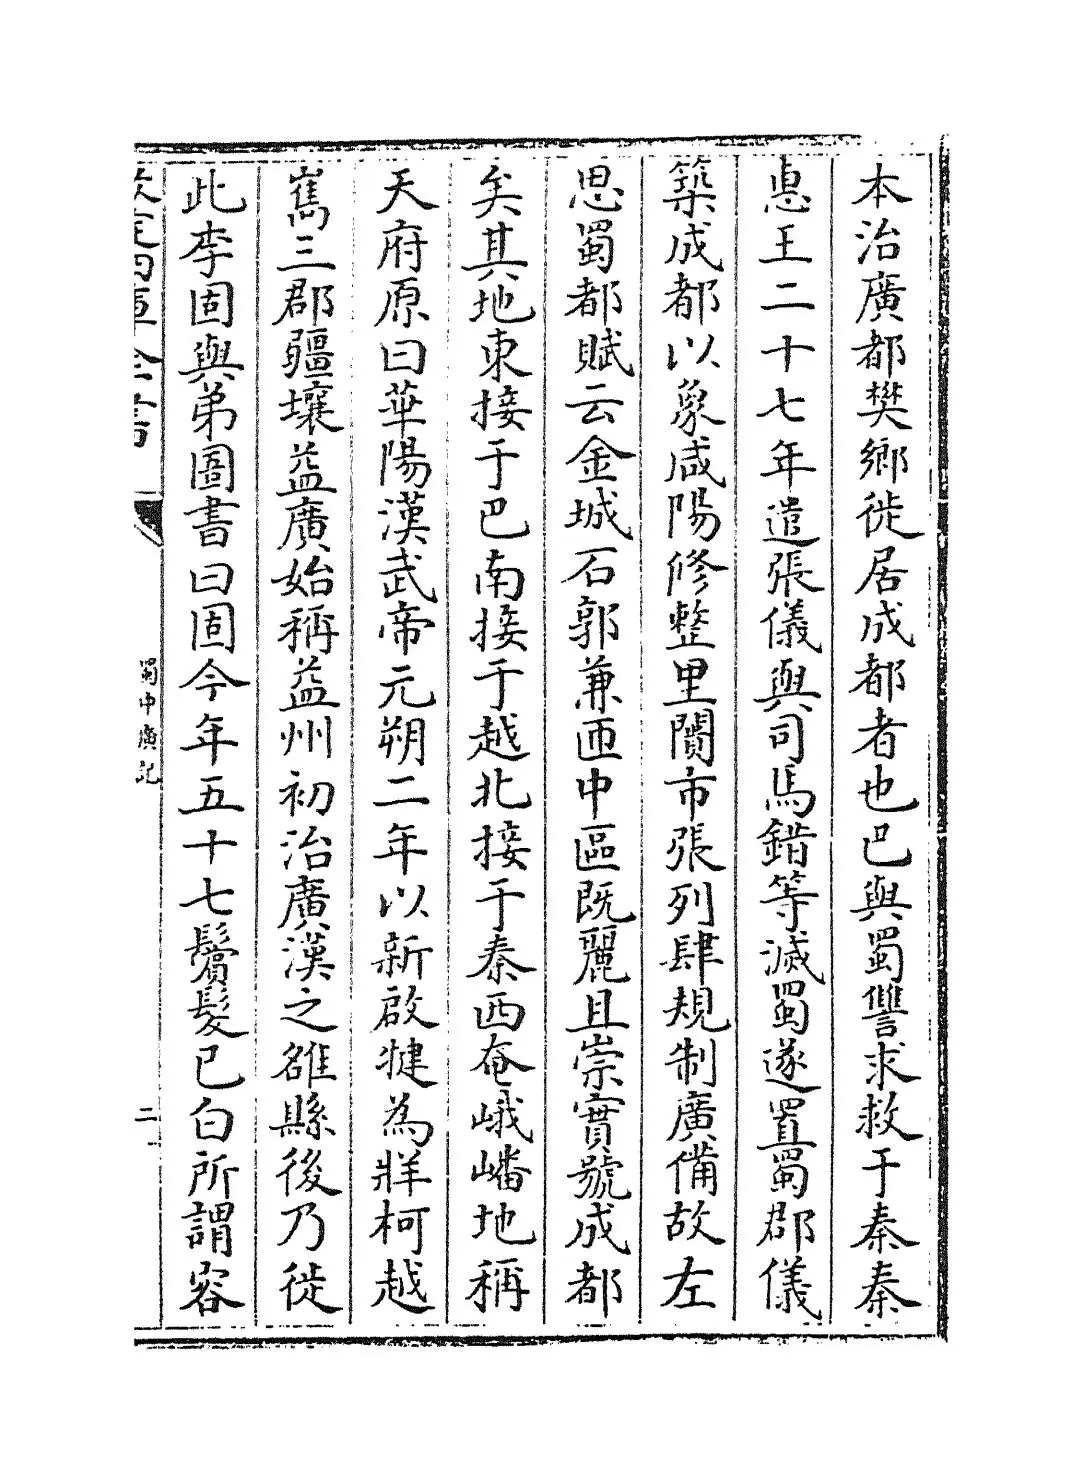 本治廣都樊鄉徙居成都者也巴與蜀讐求救于秦秦
惠王二十七年遣張儀與司馬錯等滅蜀遂置蜀郡儀
築成都以象咸陽修整里闠市張列肆規制廣備故左
思蜀都賦云金城石郭兼匝中區既麗且崇實號成都
矣其地東接于巴南接于越北接于秦西奄峨嶓地稱
天府原曰華陽漢武帝元朔二年以新啟犍為牂柯越
嶲三郡疆壤益廣始稱益州初治廣漢之雒縣後乃徙
此李固與弟圖書曰固今年五十七鬢髮已白所謂容
欽定四庫全書
蜀中廣記
二